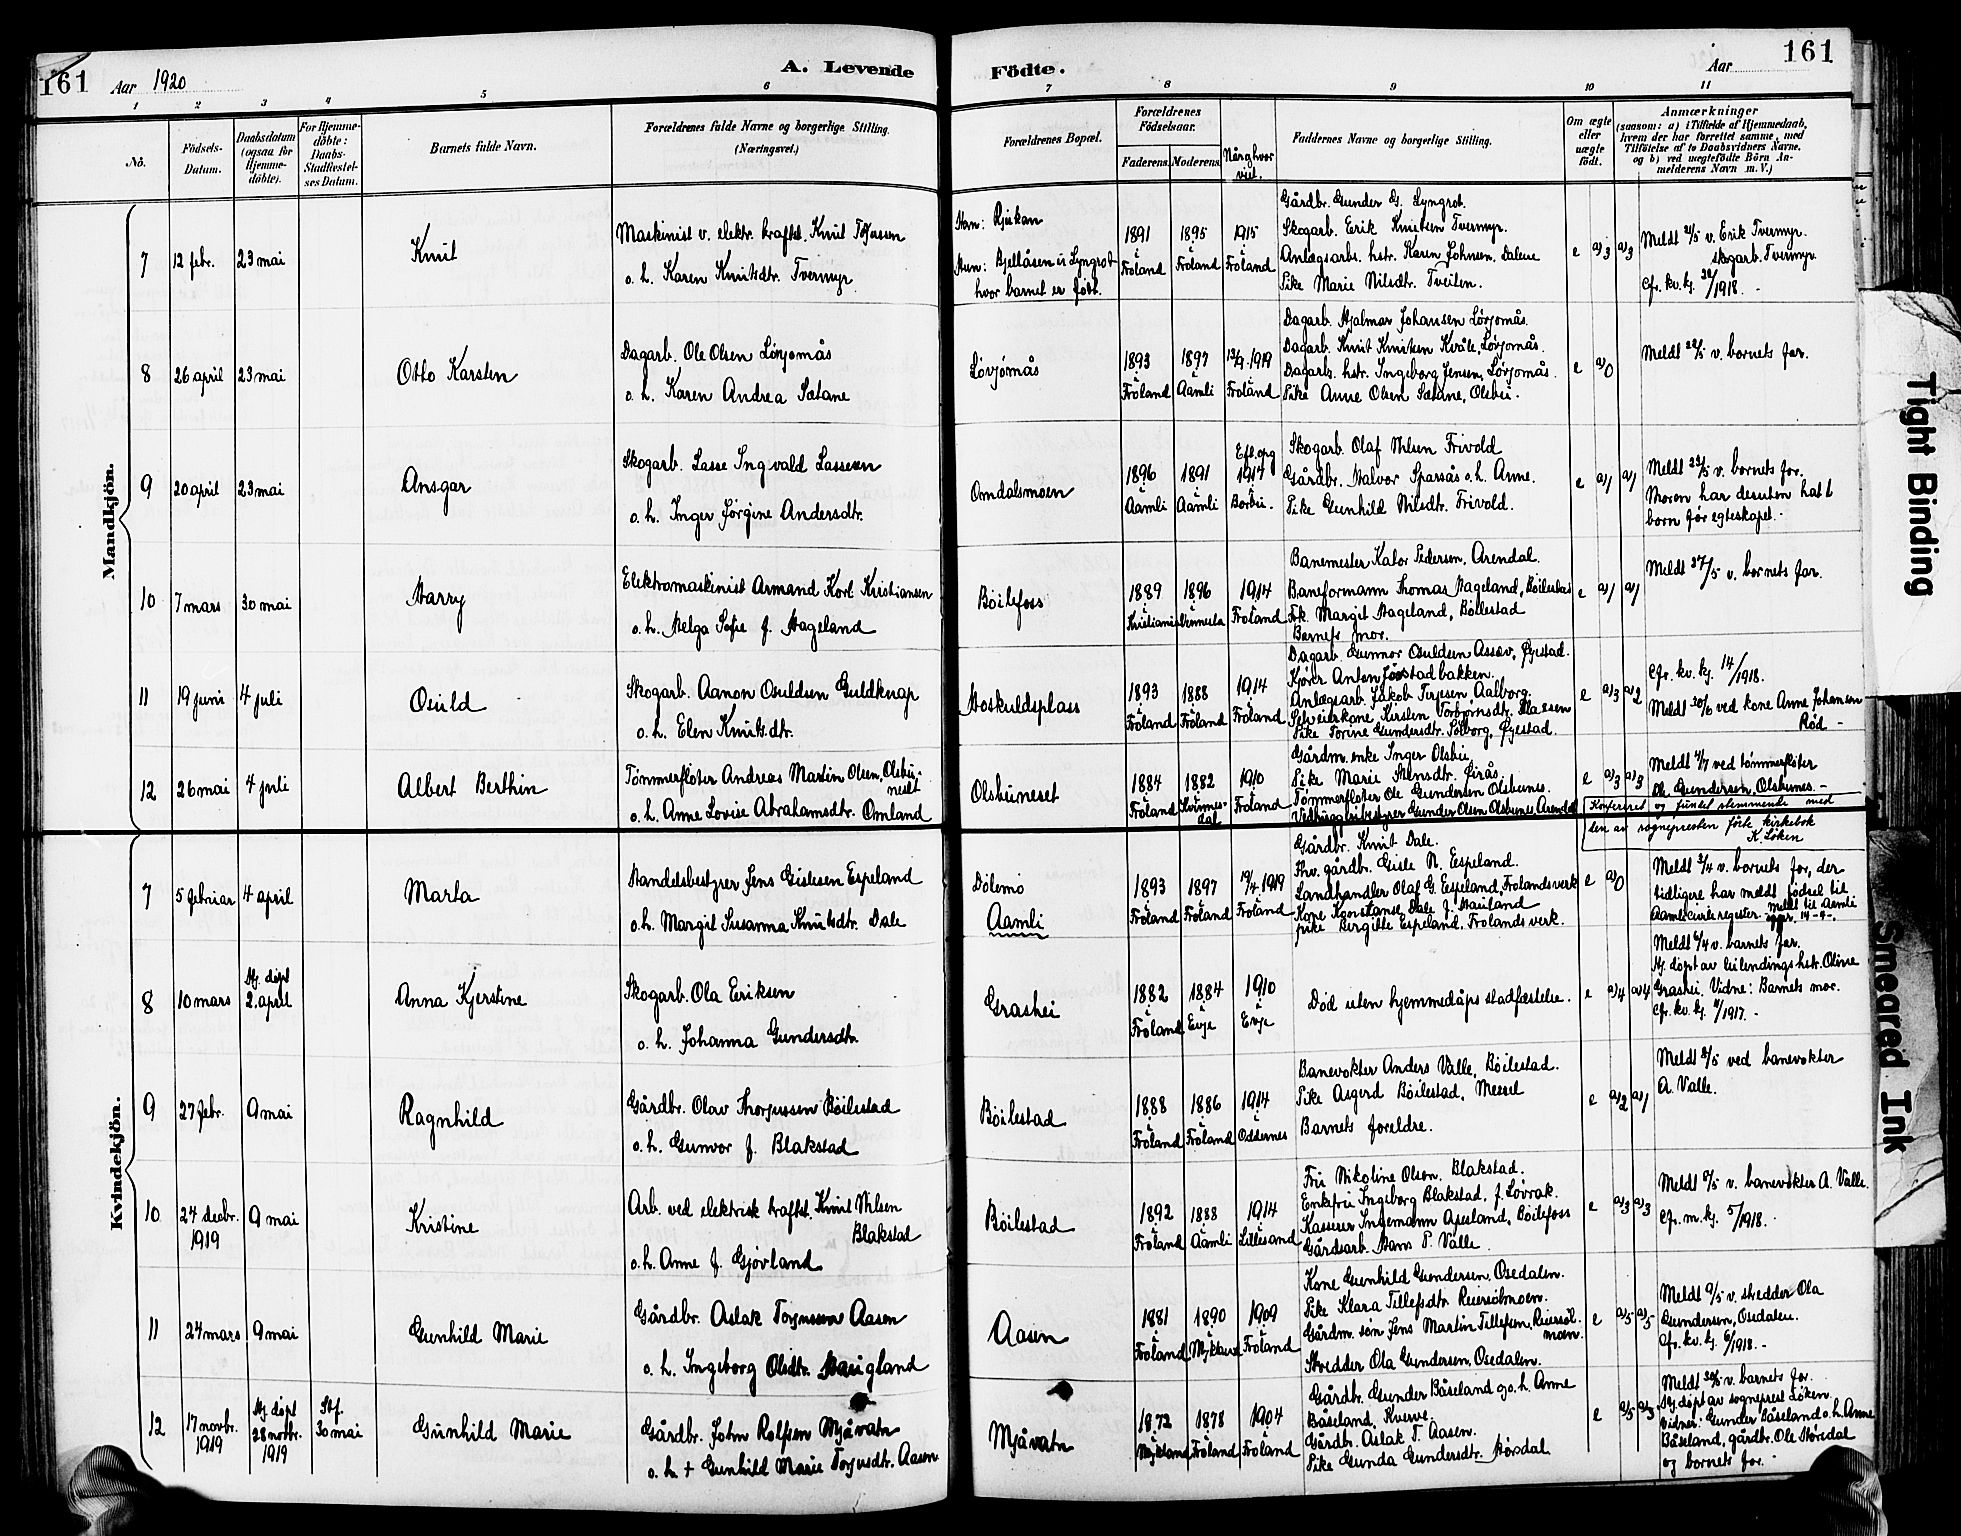 161
Aar 1920
A. Levende
Födte.
Aar
161
1 2 3 4 5 6 7 8 9 10 11
No.
Födsels-
Datum.
Daabsdatum
(ogsaa for
Hjemme-
döbte).
For Hjemme-
döbte:
Daabs-
Stadfæstel-
ses Datum.
Barnets fulde Navn.
Forældrenes fulde Navne og borgerlige Stilling.
(Næringsvei.)
Forældrenes Bopæl.
Forældrenes
Födselsaar.
Faderens.
Moderens.
Når og hvor
viet.
Faddernes Navne og borgerlige Stilling.
Om ægte
eller
uægte
födt.
Anmærkninger
(saasom: a) i Tilfælde af Hjemmedaab,
hvem der har forrettet samme, med
Tilföielse af to Daabsvidners Navne,
og b) ved uægtefödte Börn An-
melderens Navn m. V.)
Mandkjön.
7 12 febr. 23 mai
Knut
Maskinist v. elektr. kraftst. Knut Torjussen
o. h. Karen Knutsdtr. Tvermyr
Han: Rjukan
Hun: Bjellåsen u. Lyngrot
hvor barnet er født.
1891 Froland
1895 Froland
1915 Froland
Gårdbr. Gunder G. Lyngrot.
Skogarb. Erik Knutsen Tvermyr.
Anlægsarbs. hstr. Karen Johnsen, Dalene
Pike Marie Nilsdtr. Tveiten.
e a)3 a)3
Meldt 21/5 v. Erik Tvermyr.
skogarb. Tvermyr
Cfr. kv. kj. /1918.
8 26 april 23 mai
Otto Karsten
Dagarb. Ole Olsen Løvjomås
o. h. Karen Andrea Sætane
Løvjomås
1893 Froland
1897 Aamli
1919 Froland
Dagarb. Hjalmar Johansen Løvjomås.
Dagarb. Knut Knutsen Kvåle, Løvjomås.
Dagarb. hstr. Ingeborg Jensen, Løvjomås.
Pike Anne Olsen Sætane, Olsbu.
e a)0
Meldt v. barnets far.
9 20 april 23 mai
Ansgar
Skogarb. Lasse Ingvald Lassesen
o. h. Inger Jørgine Andersdtr.
Omdalsmoen
1896 Aamli
1891 Aamli
Eft. org
1917
Borbu.
Skogarb. Olaf Nilsen Frivold
Gårdbr. Halvor Sparsås o. h. Anne.
Pike Gunhild Nilsdtr. Frivold.
e a)1 a)1
Meldt 23/5 v. barnets far.
Moren har desuten hat 1
barn før egteskapet.
10 7 mars 30 mai
Harry
Elektromaskinist Armand Karl Kristiansen
o. h. Helga Sofie f. Hageland
Bøilefoss
1889 Kristiania
1896 Vennesla
1914 Froland
Banemester Kator Pedersen, Arendal.
Baneformann Thomas Hageland, Bøilestad
Frk. Margit Hageland, Bøilestad
Barnets mor.
e a)1 a)1
Meldt 27/5 v. barnets far.
11 19 juni 4 juli
Osuld
Skogarb. Aanon Osuldsen Guldknap
o. h. Elen Knutsdtr.
Hoskuldsplass
1893 Froland
1888 Froland
1914 Froland
Dagarb. Gunnor Osuldsen Assæv, Øyestad.
Kjører Anton Jovstadbakken.
Anlægsarb. Jakob Terjesen Aalborg.
Selveierkone Kirsten Torbjørnsdtr.
Pike Torine Gundersdtr. Solborg, Øyestad.
e a)3 a)2
Cfr. kv. kj. 14/1918.
Meldt 30/6 ved kone Anne Johansen
Rød -
12 26 mai 4 juli
Albert Berthin
Tømmerfløter Andreas Martin Olsen, Olsbu-
neset
o. h. Anne Lovise Abrahamsdtr. Omland
Olsbuneset
1884 Froland
1882 Kvinnes-
dal
1910 Froland
Gårdm. enke Inger Olsbu,
Pike Marie Stensdtr.
Tømmerfløter Ole Gundersen Olsbunes.
Vedhuggerbestyrer Gunder Olsen Olsbunes, Arendal
e a)3 a)3
Meldt 4/7 ved tømmerfløter
Ole Gundersen, Olsbunes. -
Konferert og funnet stemmende med
den av sognepresten førte kirkebok
K. Løken
Kvindekjön.
7 5 februar 4 april
Marta
Handelsbestyrer Jens Gislesen Espeland
o. h. Margit Susanna Knutsdtr. Dale
Dølemo
Aamli
1893 Froland
1897 Froland
1919 Froland
Gårdbr. Knut Dale.
Fhv. gårdbr. Gisle N. Espeland.
Landhandler Olaf G. Espeland, Frolandsverk
Kone Konstanse Dale f. Hauiland
pike Birgitte Espeland, Frolands verk.
e a)0
Meldt 3/4 v. barnets far, der
tidligere har meldt fødsel til
Aamli civilregister. Meldt til Aamli
14-4-.
8 10 mars Hj. døpt
2. april
Anna Kjerstine
Skogarb. Ola Eriksen
o. h. Johanna Gundersdtr.
Grashei
1882 Froland
1884 Evje
1910 Evje
Død uten hjemmedåps stadfæstelse.
e a)4 a)4
Meldt 6/4 v. barnets far.
Hj. døpt av leilendings hstr. Oline
Grashei. Vidne: Barnets mor.
Cfr. kv. kj. /1917. -
9 27 febr. 9 mai
Ragnhild
Gårdbr. Olav Thorjussen Bøilestad
o. h. Gunvor f. Blakstad
Bøilestad
1888 Froland
1886 Froland
1914 Oddernes
Banevokter Anders Valle, Bøilestad.
Pike Asgerd Bøilestad, Messel
Barnets foreldre.
e a)2 a)1
Meldt 8/5 ved banevokter
A. Valle.
10 24 decbr.
1919
9 mai
Kristine
Arb. ved elektrisk kraftst. Knut Nilsen
Blakstad
o. h. Anne f. Gjøvland
Bøilestad
1892 Froland
1888 Aamli
1914 Lillesand
Fru Nikoline Olsen, Blakstad.
Enkefru Ingeborg Blakstad, f. Løvrak.
Kasserer Ingemann Apesland, Bøilefoss
Gårdsarb. Hans P. Valle
e a)3 a)3
Meldt 8/5 v. banevokter A. Valle.
Cfr. m. kj. 5/1918. -
11 24 mars 9 mai
Gunhild Marie
Gårdbr. Aslak Torjussen Aasen
o. h. Ingeborg Olsdtr. Haugland
Aasen
1881 Froland
1890 Mykland
1909 Froland
Kone Gunhild Gundersen, Osedalen.
Pike Klara Tellefsdtr. Reiersølmoen.
Gårdm. søn Jens Martin Tellefsen, Reiersøl-
moen.
Skredder Ola Gundersen, Osedalen.
e a)5 a)5
Meldt 9/5 v. skredder Ola
Gundersen, Osedalen.
Cfr. kv. kj. 6/1918. -
12 17 novbr.
1919
Hj. døpt
28 novbr.
1919
Stf.
30 mai
Gunhild Marie
Gårdbr. John Rolfsen Mjåvatn
o. h. + Gunhild Marie Torjusdtr. Aasen
Mjåvatn
1872 Mykland
1878 Froland
1904 Froland
Gårdbr. Gunder Båseland og o. h. Anne
Båseland, Kverve.
Gårdbr. Aslak T. Aasen.
Pike Gunda Gundersdtr. Hørsdal
e a)5 a)3
Meldt 30/5 v. barnets far.
Hj. døpt av sogneprest Løken.
Vidner: Gunder Båseland o. h. Anne
Båseland, gårdbr. Ole Høredal
og barnets far. -
Tight Binding
Smeared Ink